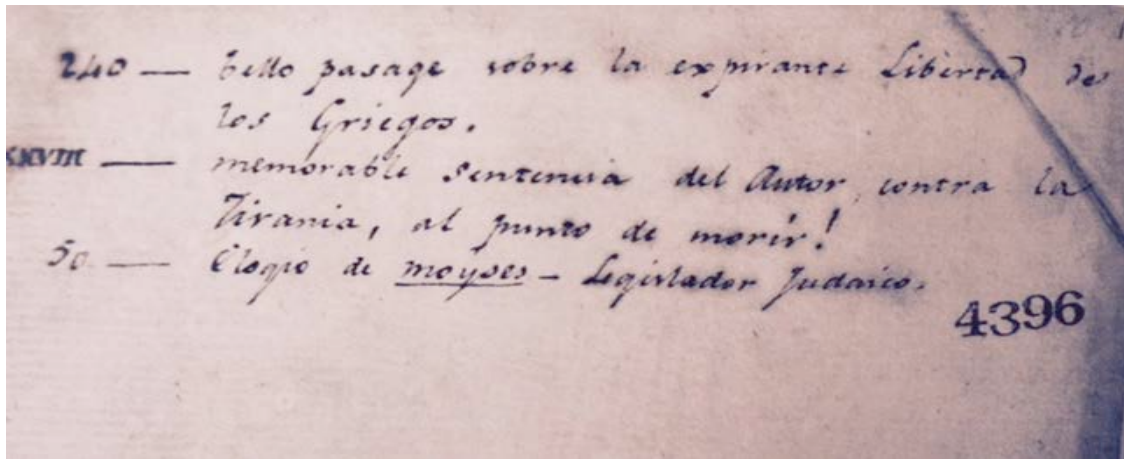 240 — bello pasage sobre la expirante Libertad de
los Griegos.
XXVIII — memorable Sentencia del Autor, contra la
Tirania, al punto de morir!
50 — Elogio de moyses – Legislador Judaico.
4396